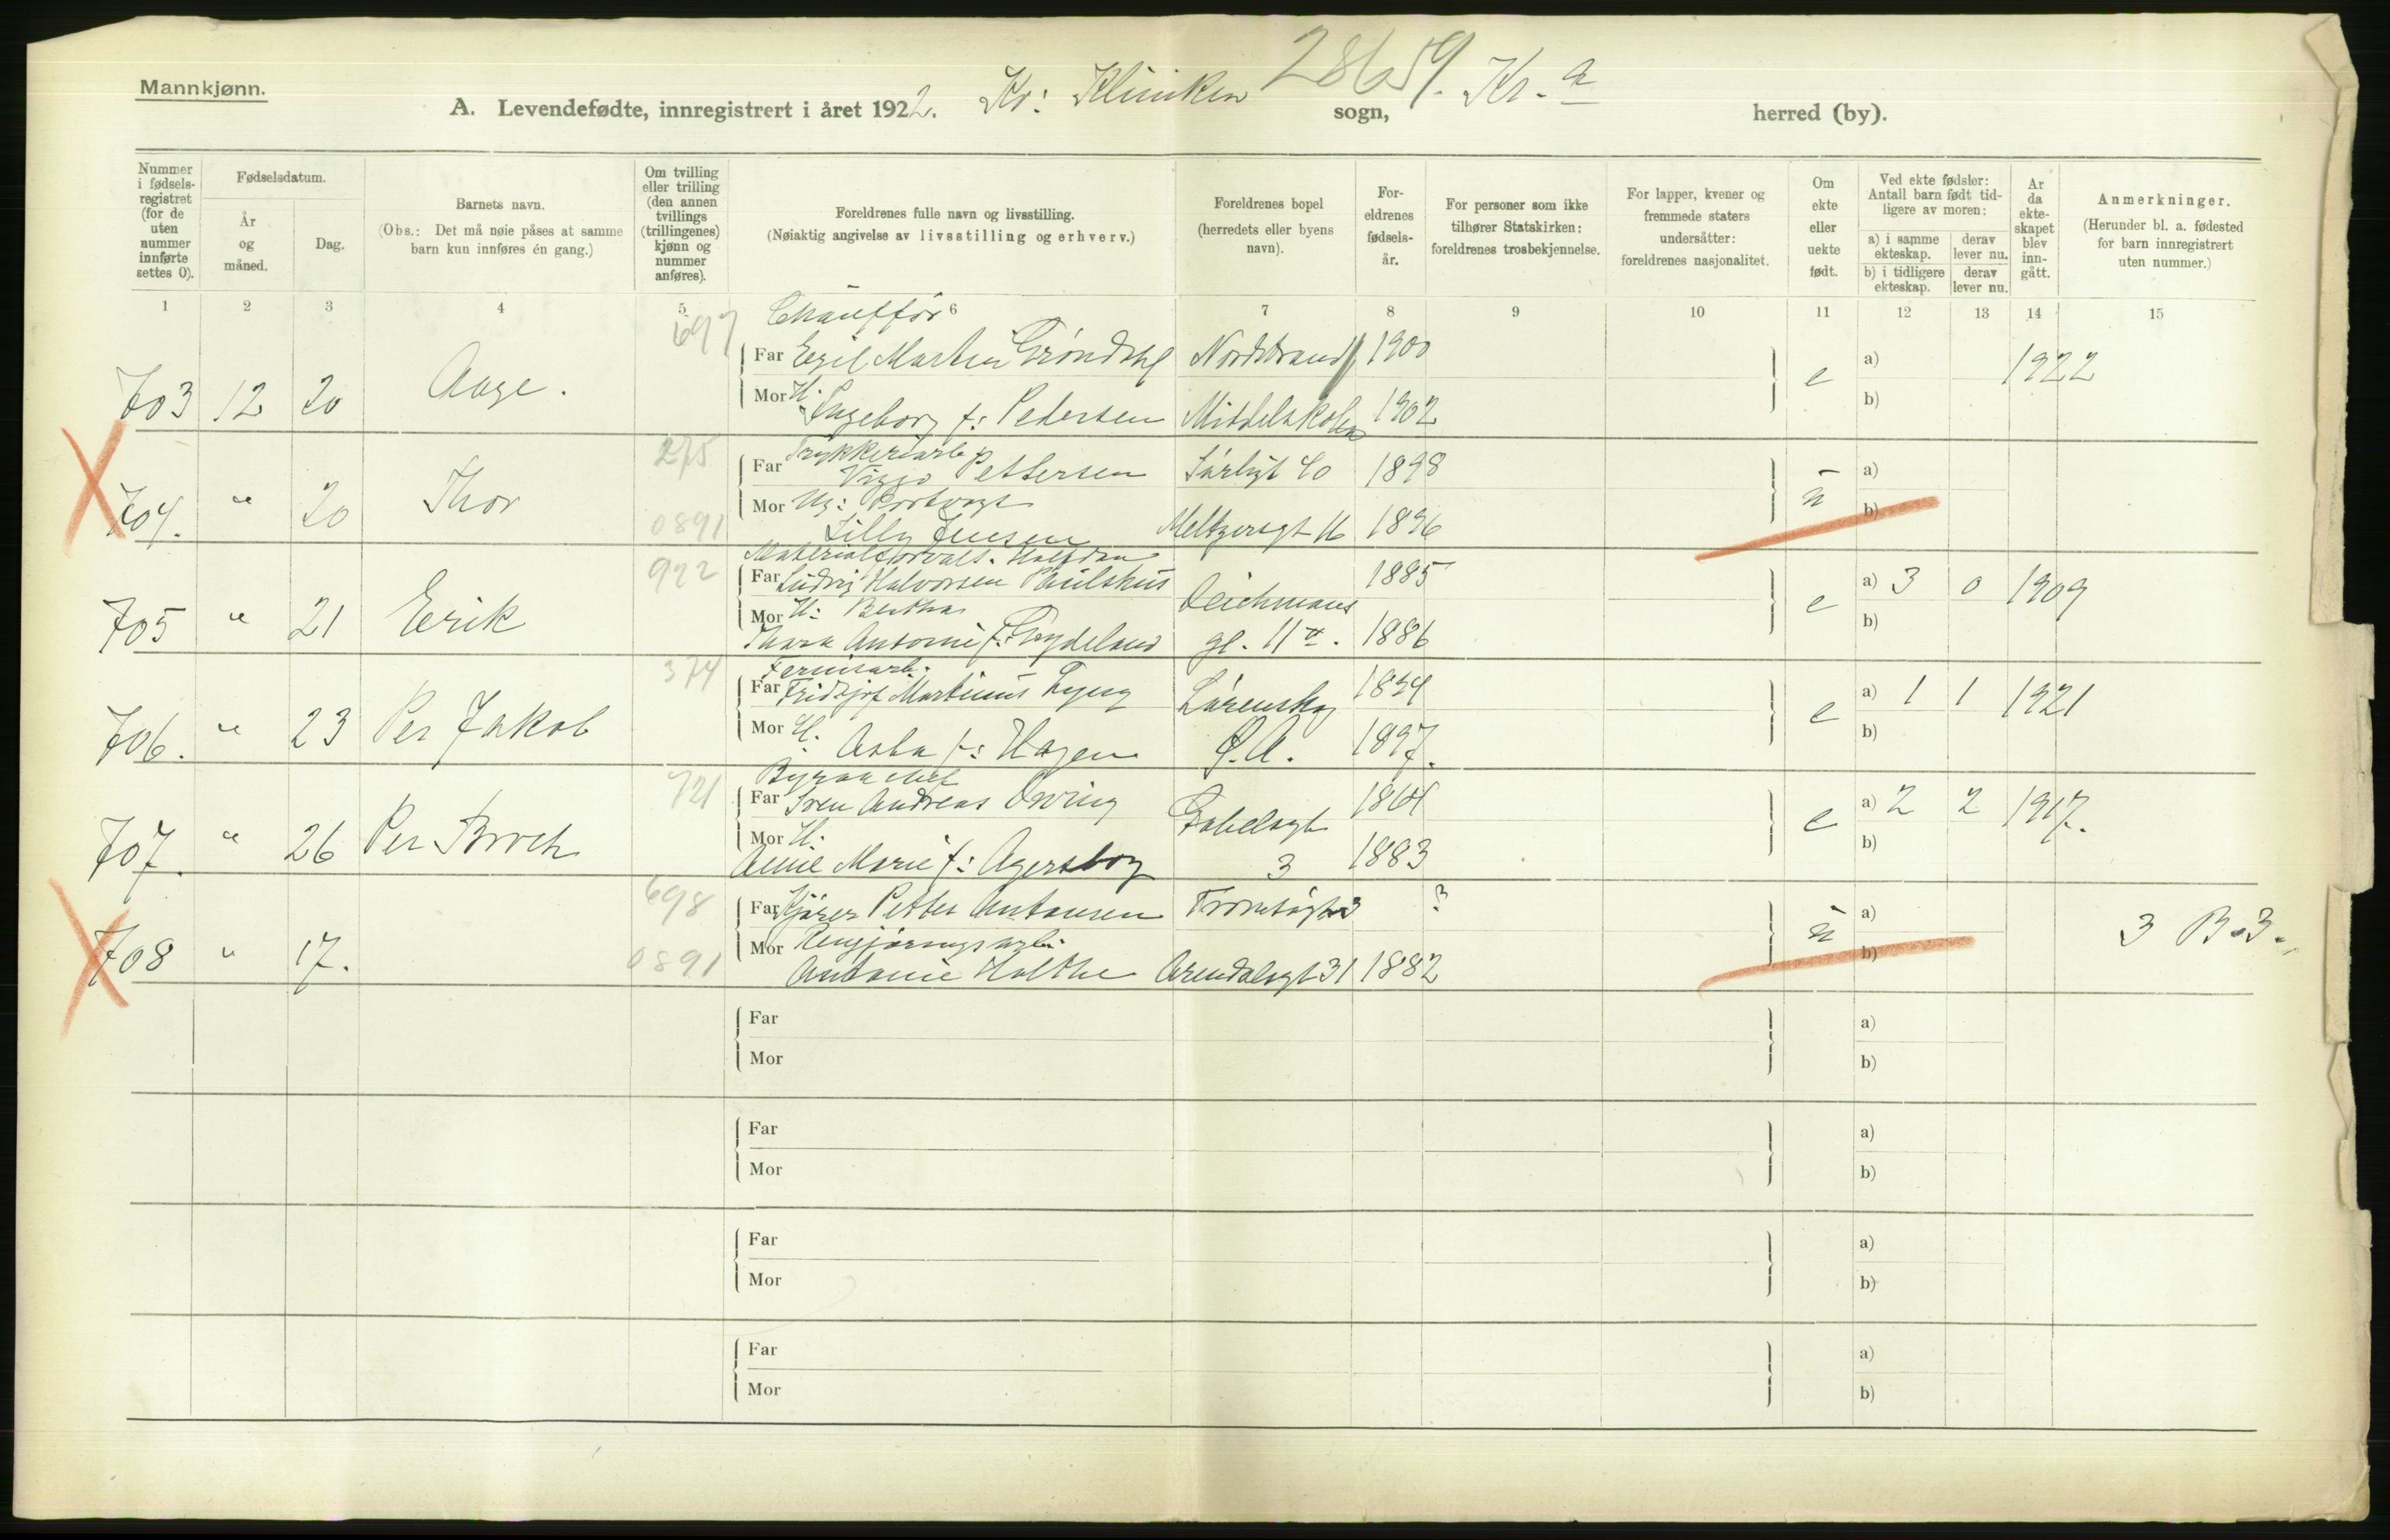 Mannkjønn.
28659.
A. Levendefødte, innregistrert i året 1922. Kr: Kliniken sogn, Kr.a herred (by).
Nummer i fødsels-registret (for de uten nummer innførte settes 0).
Fødselsdatum.
År og måned.
Dag.
Barnets navn.
(Obs.: Det må nøie påses at samme barn kun innføres én gang.)
Om tvilling eller trilling (den annen tvillings (trillingenes) kjønn og nummer anføres).
Foreldrenes fulle navn og livsstilling.
(Nøiaktig angivelse av livsstilling og erhverv.)
Foreldrenes bopel (herredets eller byens navn).
For-eldrenes fødsels-år.
For personer som ikke tilhører Statskirken: foreldrenes trosbekjennelse.
For lapper, kvener og fremmede staters undersåtter: foreldrenes nasjonalitet.
Om ekte eller uekte født.
Ved ekte fødsler: Antall barn født tid-ligere av moren:
a) i samme ekteskap.
derav lever nu.
b) i tidligere ekteskap.
derav lever nu.
År da ekte-skapet blev inn-gått.
Anmerkninger.
(Herunder bl. a. fødested for barn innregistrert uten nummer.)
1 2 3 4 5 6 7 8 9 10 11 12 13 14 15
697 Chauffør
703 12 20 Aage. Far Egil Martin Grøndahl Nordstrand 1900 e a) 1922
Mor H. Ingeborg f: Pedersen Middelskolen 1902 b)
275 Trykkeriarb
704. " 20 Thor Far Viggo Pettersen Sørligt 40 1898 u a)
Mor Ug:
0891 Lilly Jensen Meltzersgt 16 1896 b)
922 Materialforvalt. Halfdan
705 " 21 Erik Far Ludvig Halvorsen Paulshus Deichmans 1885 e a) 3 0 1909
Mor H: Bertha
Thora Antonie f: gt. 11 1886 b)
374
706. " 23 Per Jakob Far Fridtjof Martinus Lørenskog 1894 e a) 1 1 1921
Mor H. Asta f: Hagen Ø.A. 1897. b)
721 Byraachef
707. " 26 Per Broch Far Sven Andreas Øvring Gabelsgt 1861 e a) 2 2 1917.
Mor H.
Anne Marie f: Agersborg 3 1883 b)
698
708 " 17. Far Kjører Petter Antonsen Tromsøgt 3 ? u a) 3 B.3.
Mor Rengjøringsarb.
0891 Antonie Holthe Arendalsgt 31 1882 b)
Far a)
Mor b)
Far a)
Mor b)
Far a)
Mor b)
Far a)
Mor b)